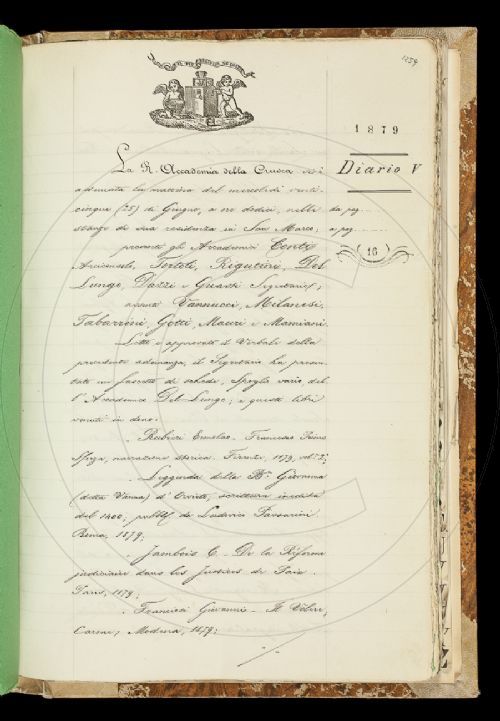 IL PIÙ BEL FIOR NE COGLIE
1259
1879
Diario V
da pag.
a pag.
(16)
La R. Accademia della Crusca si è
adunata la mattina del mercoledì venti-
cinque (25) di Giugno, a ore dodici, nelle
stanze di sua residenza in San Marco;
presenti gli Accademici Conti
Arciconsolo, Tortoli, Rigutini, Del
Lungo, Dazzi e Guasti Segretario;
assenti Vannucci, Milanesi,
Tabarrini, Gotti, Mauri e Mamiani.
Letto e approvato il Verbale della
precedente adunanza, il Segretario ha presen-
tato un fascetto di schede, Spoglio vario del-
l'Accademico Del Lungo; e questi libri
venuti in dono:
. Rubieri Ermolao - Francesco Primo
Sforza, narrazione storica. Firenze, 1879, vol. 2;
. Leggenda della Bᵃ. Giovanna
(detta Vanna) d'Orvieto, scrittura inedita
del 1400; pubbl. da Ludovico Passarini
Roma, 1879;
. Jambois C. - De la Réforme
judiciaire dans les Justices de Paix.
Paris, 1879;
. Franciosi Giovanni - Il Vòlere,
Carme; Modena, 1879;